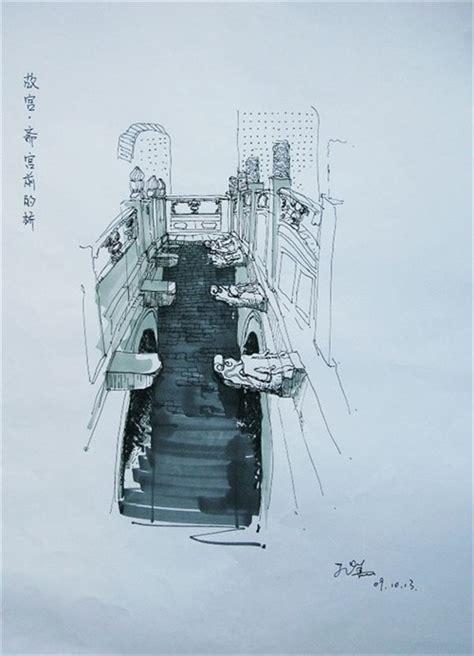 故宫·斋宫前的桥
09.10.13.